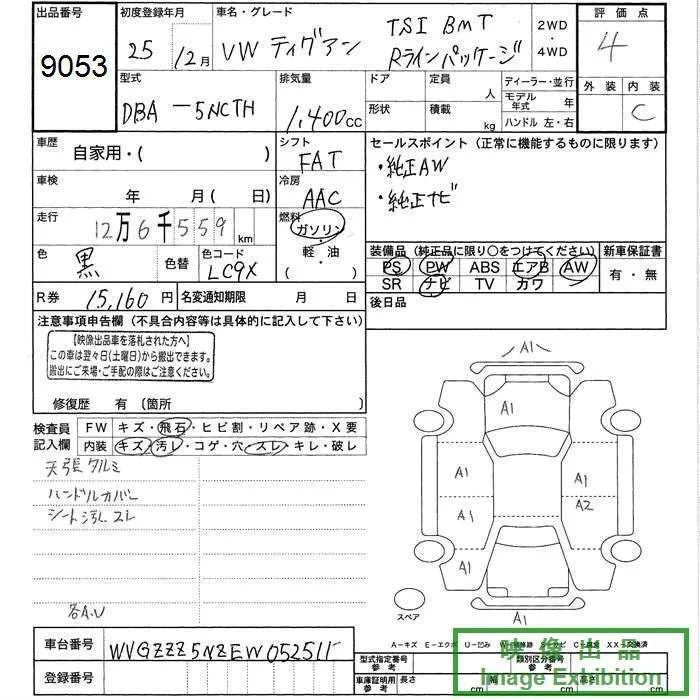 出品番号 初度登録年月 車名・グレード 評価点
9053 25 12月 VW ティグアン TSI BMT Rラインパッケージ 2WD・4WD 4
型式 排気量 ドア 定員 ディーラー・並行 外装 内装
DBA -5NCTH 1,400cc 形状 人 積載 kg モデル年式 年 ハンドル 左・右 C
車歴 シフト セールスポイント(正常に機能するものに限ります)
自家用・( ) FAT ・純正AW
車検 冷房 ・純正ナビ
年 月( 日) AAC
走行 燃料
12万6千559km ガソリン・
色 黒 色替 色コード LC9X 軽・油 ( ) 装備品(純正品に限り○をつけてください) 新車保証書
PS PW ABS エアB AW 有・無
SR ナビ TV カワ
R券 15,160円 名変通知期限 月 日 後日品
注意事項申告欄(不具合内容等は具体的に記入して下さい)
【映像出品車を落札された方へ】
この車は翌々日(土曜日)から搬出できます。
搬出にご来場・ご手配の際はご注意ください。
修復歴 有 〔箇所 〕
検査員記入欄 FW キズ・飛石・ヒビ割・リペア跡・X要
内装 キズ・汚レ・コゲ・穴・スレ・キレ・破レ
天張タルミ
ハンドルカバー
シート汚レ スレ
各A.U
A1
A1
A1 A1
A1 A2
A1
スペア
車台番号 WVGZZZ5NZEW052511
登録番号
A-キズ E-エクボ U-凹み XX-交換済
型式指定番号 参考 類別区分番号 参考
車庫証明用 参考 長さ cm 幅 cm 高さ cm
映像出品
Image Exhibition